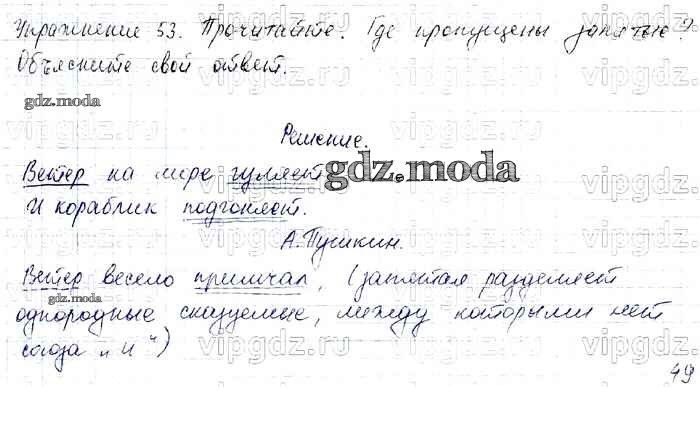 Упражнение 53. Прочитайте. Где пропущены запятые?
Объясните свой ответ.
gdz.moda
Решение.
Ветер на море гуляет
gdz.moda
И кораблик подгоняет.
А.Пушкин.
Ветер весело примчал, (запятая разделяет
gdz.moda
однородные сказуемые, между которыми нет
союза "и")
49
vipgdz.ru